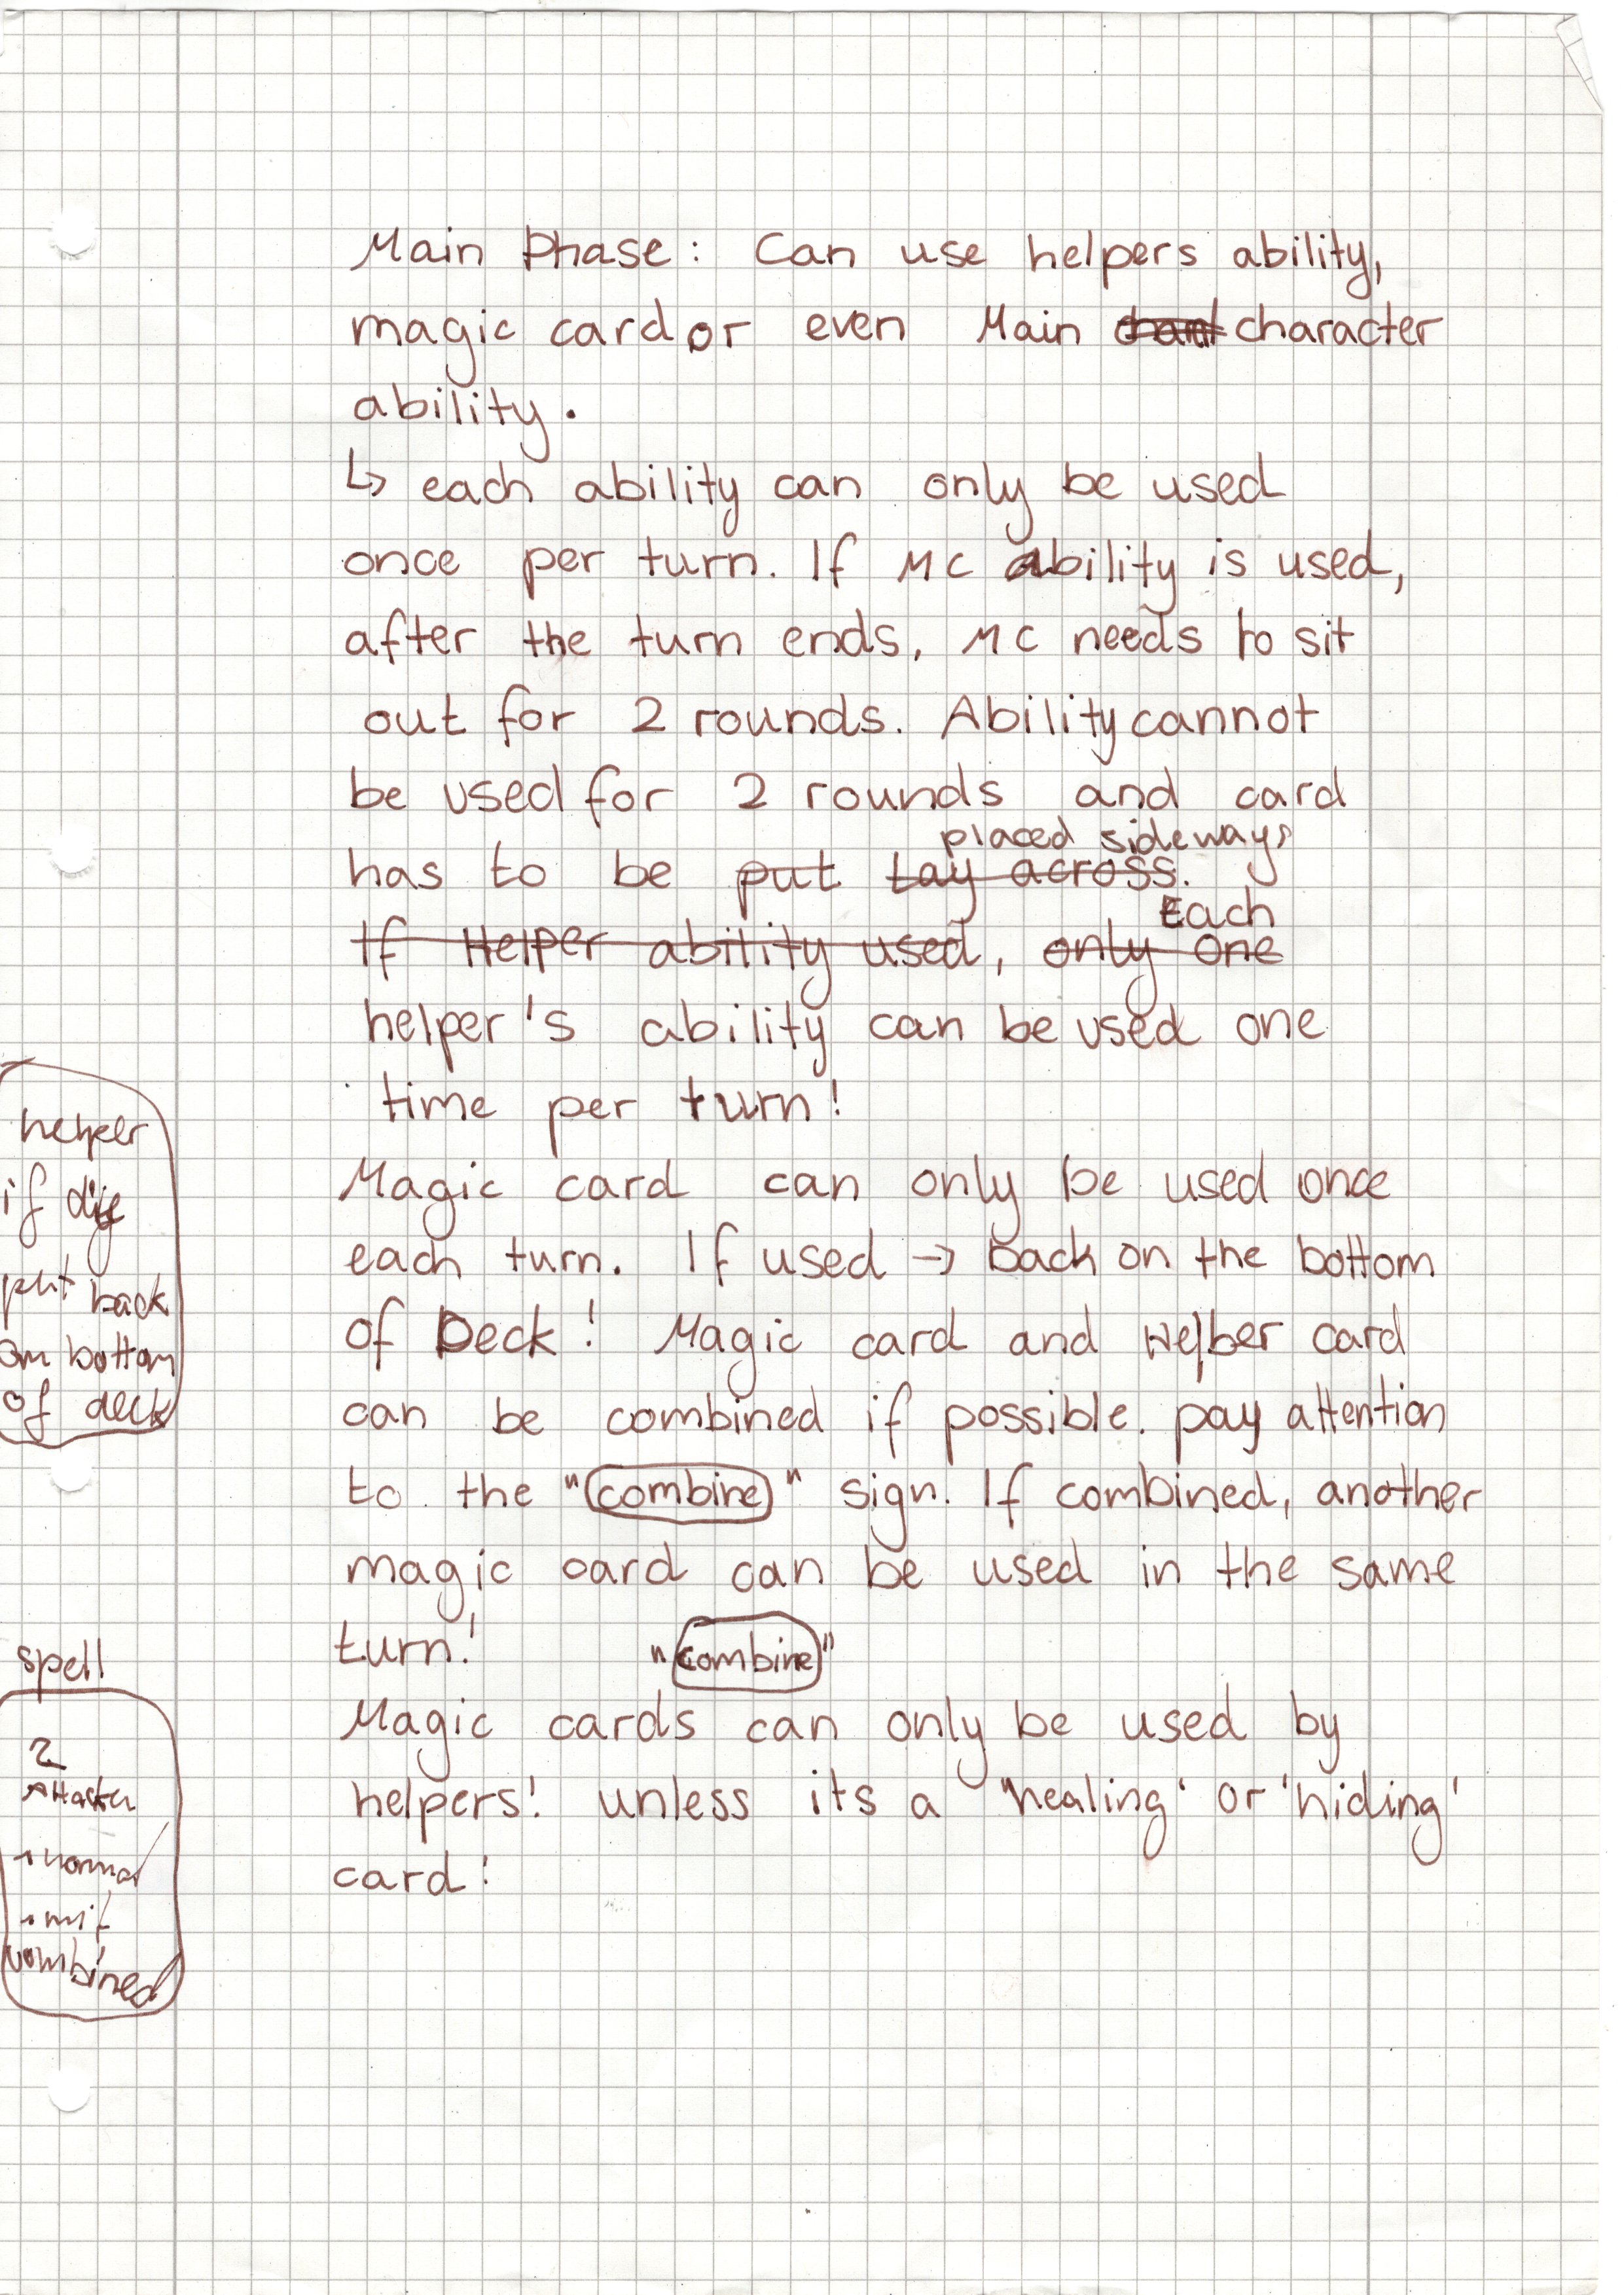 Main Phase: Can use helpers ability,
magic card or even Main character
ability.
↳ each ability can only be used
once per turn. If MC ability is used,
after the turn ends, MC needs to sit
out for 2 rounds. Ability cannot
be used for 2 rounds and card
placed sideways
has to be put lay across.
Each
If Helper ability used, only one
helper's ability can be used one
time per turn!
Magic card can only be used once
each turn. If used → back on the bottom
of Deck! Magic card and Helber card
can be combined if possible. pay attention
to the "combine" sign. If combined, another
magic card can be used in the same
turn!
"combine"
Magic cards can only be used by
helpers! unless its a 'healing' or 'hiding'
card!
helper
if die
put back
on bottom
of deck
spell
2
Attacken
→ normal
→ mit
combined